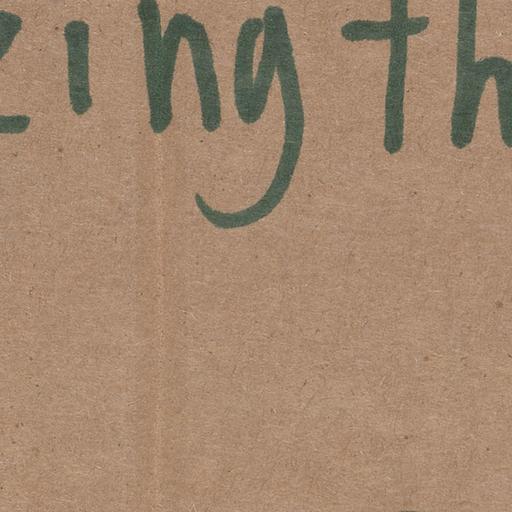 zing th